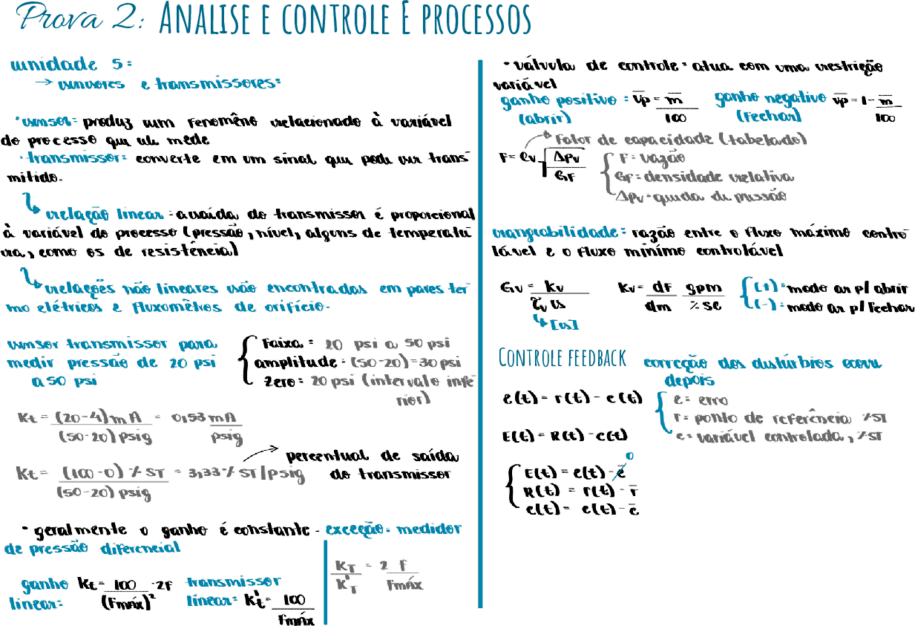 Prova 2: ANALISE E CONTROLE E PROCESSOS
unidade 5:
→ sensores e transmissores:
• sensor: produz um fenomêno relacionado à variável
do processo que ele mede
• transmissor: converte em um sinal que pode ser trans-
mitido.
relação linear: a saída do transmissor é proporcional
à variável do processo (pressão, nível, alguns de temperatu-
ra, como os de resistência)
relações não lineares são encontradas em pares ter
mo elétricos e fluxomêtros de orifício.
sensor transmissor para
medir pressão de 20 psi
a 50 psi
faixa: 20 psi a 50 psi
amplitude: (50-20)=30 psi
zero: 20 psi (intervalo infe-
rior)
Kt = (20-4) mA / (50-20) psig = 0,53 mA / psig
Kt = (100-0) % ST / (50-20) psig = 3,33 % ST/psig
percentual de saída
do transmissor
• geralmente o ganho é constante - exceção: medidor
de pressão diferencial
ganho linear: kt = 100 / (Fmáx)² · 2F
transmissor linear: k't = 100 / Fmáx
KT / K'T = 2 F / Fmáx
• válvula de controle: atua com uma restrição
variável
ganho positivo: v̄p = m̄ / 100
(abrir)
ganho negativo v̄p = 1 - m̄ / 100
(fechar)
fator de capacidade (tabelado)
F = Cv √ΔPv / GF
F = vazão
GF = densidade relativa
ΔPv = queda de pressão
rangeabilidade: razão entre o fluxo máximo contro-
lável e o fluxo mínimo controlável
Gv = kv / τv s
↳ [s]
Kv = dF / dm gpm / % SC
(+) = modo ar p/ abrir
(-) = modo ar p/ fechar
CONTROLE FEEDBACK
correção dos distúrbios ocorre
depois
e(t) = r(t) - c(t)
e = erro
r = ponto de referência %ST
c = variável controlada, %ST
E(t) = R(t) - c(t)
E(t) = e(t) - ē 0
R(t) = r(t) - r̄
c(t) = c(t) - c̄